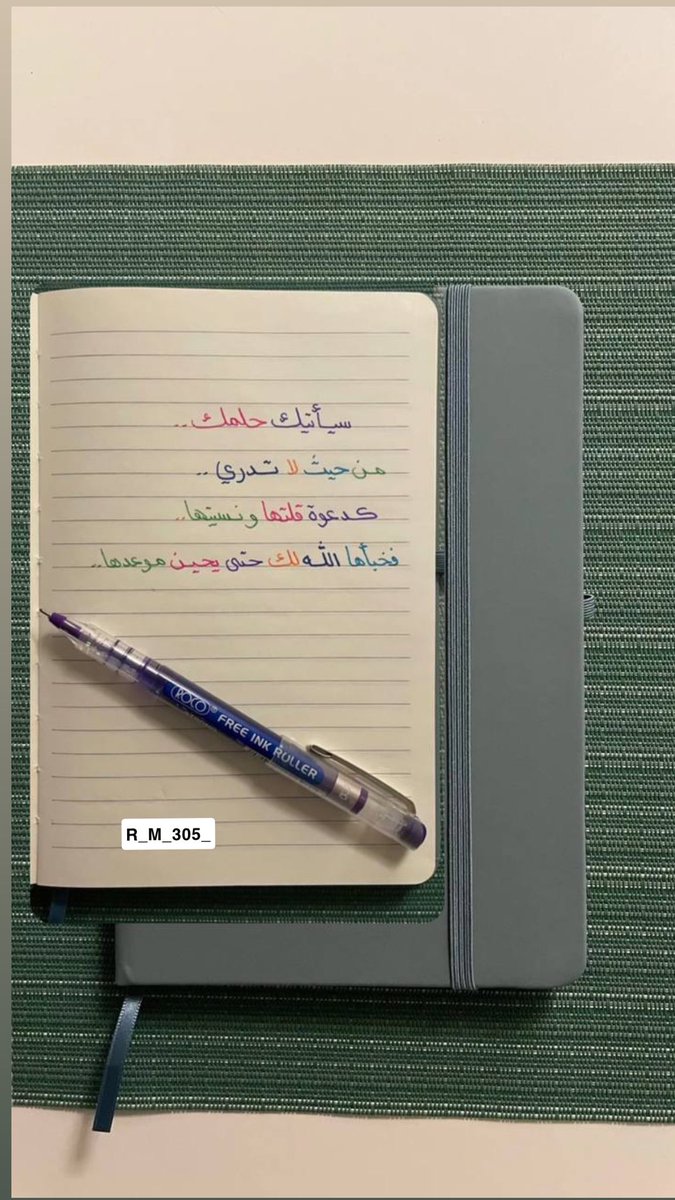 سيأتيك حلمك..
من حيث لا تدري..
كدعوة قلتها ونسيتها..
فخبأها الله لك حتى يحين موعدها..
ROCO
FREE INK ROLLER
R_M_305_